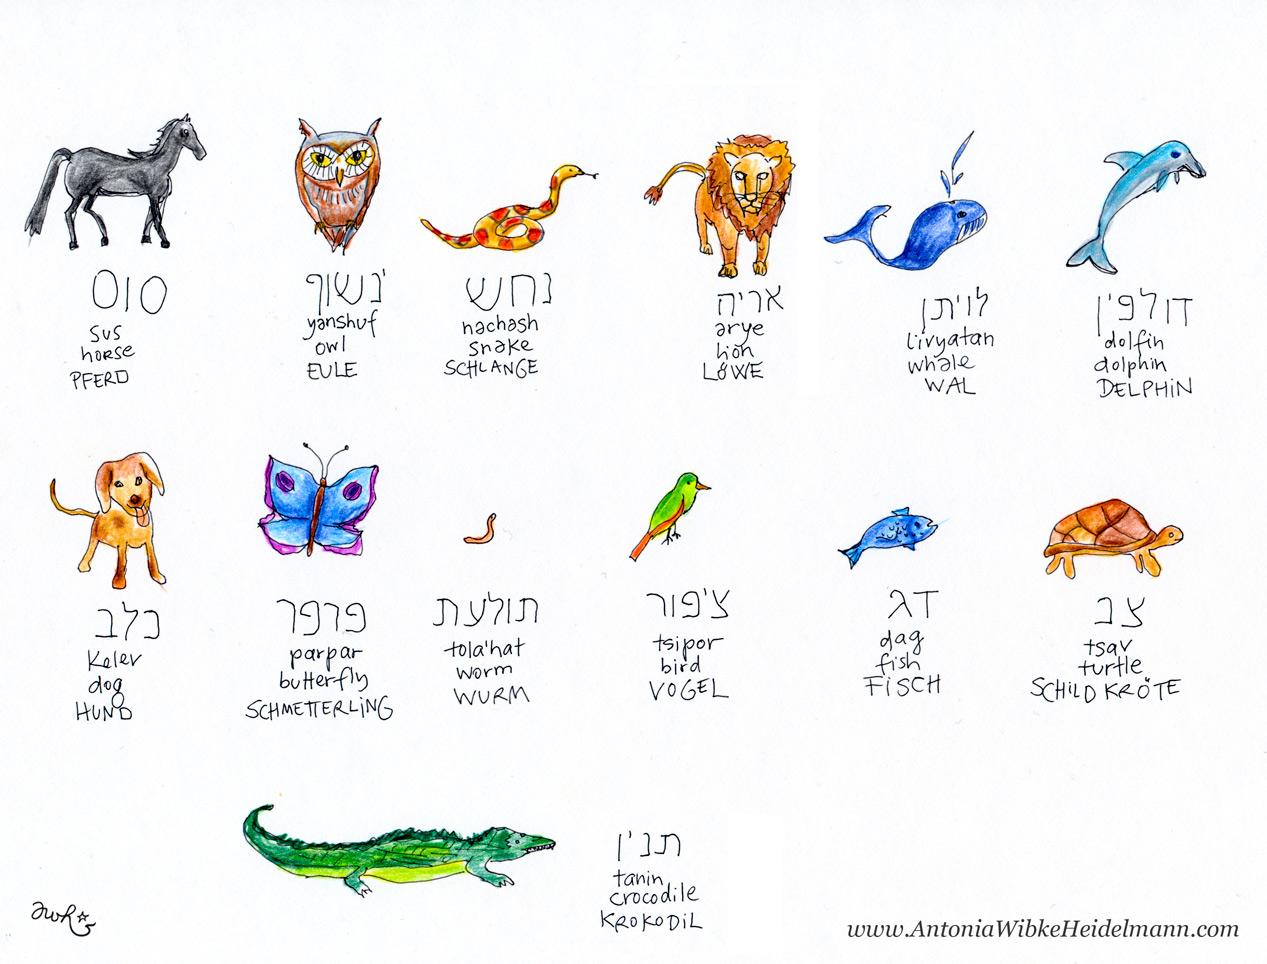 סוס
sus
horse
PFERD
ינשוף
yanshuf
owl
EULE
נחש
nachash
snake
SCHLANGE
אריה
arye
lion
LÖWE
לויתן
livyatan
whale
WAL
דולפין
dolfin
dolphin
DELPHIN
כלב
kelev
dog
HUND
פרפר
parpar
butterfly
SCHMETTERLING
תולעת
tola'hat
worm
WURM
ציפור
tsipor
bird
VOGEL
דג
dag
fish
FISCH
צב
tsav
turtle
SCHILDKRÖTE
תנין
tanin
crocodile
KROKODIL
www.AntoniaWibkeHeidelmann.com